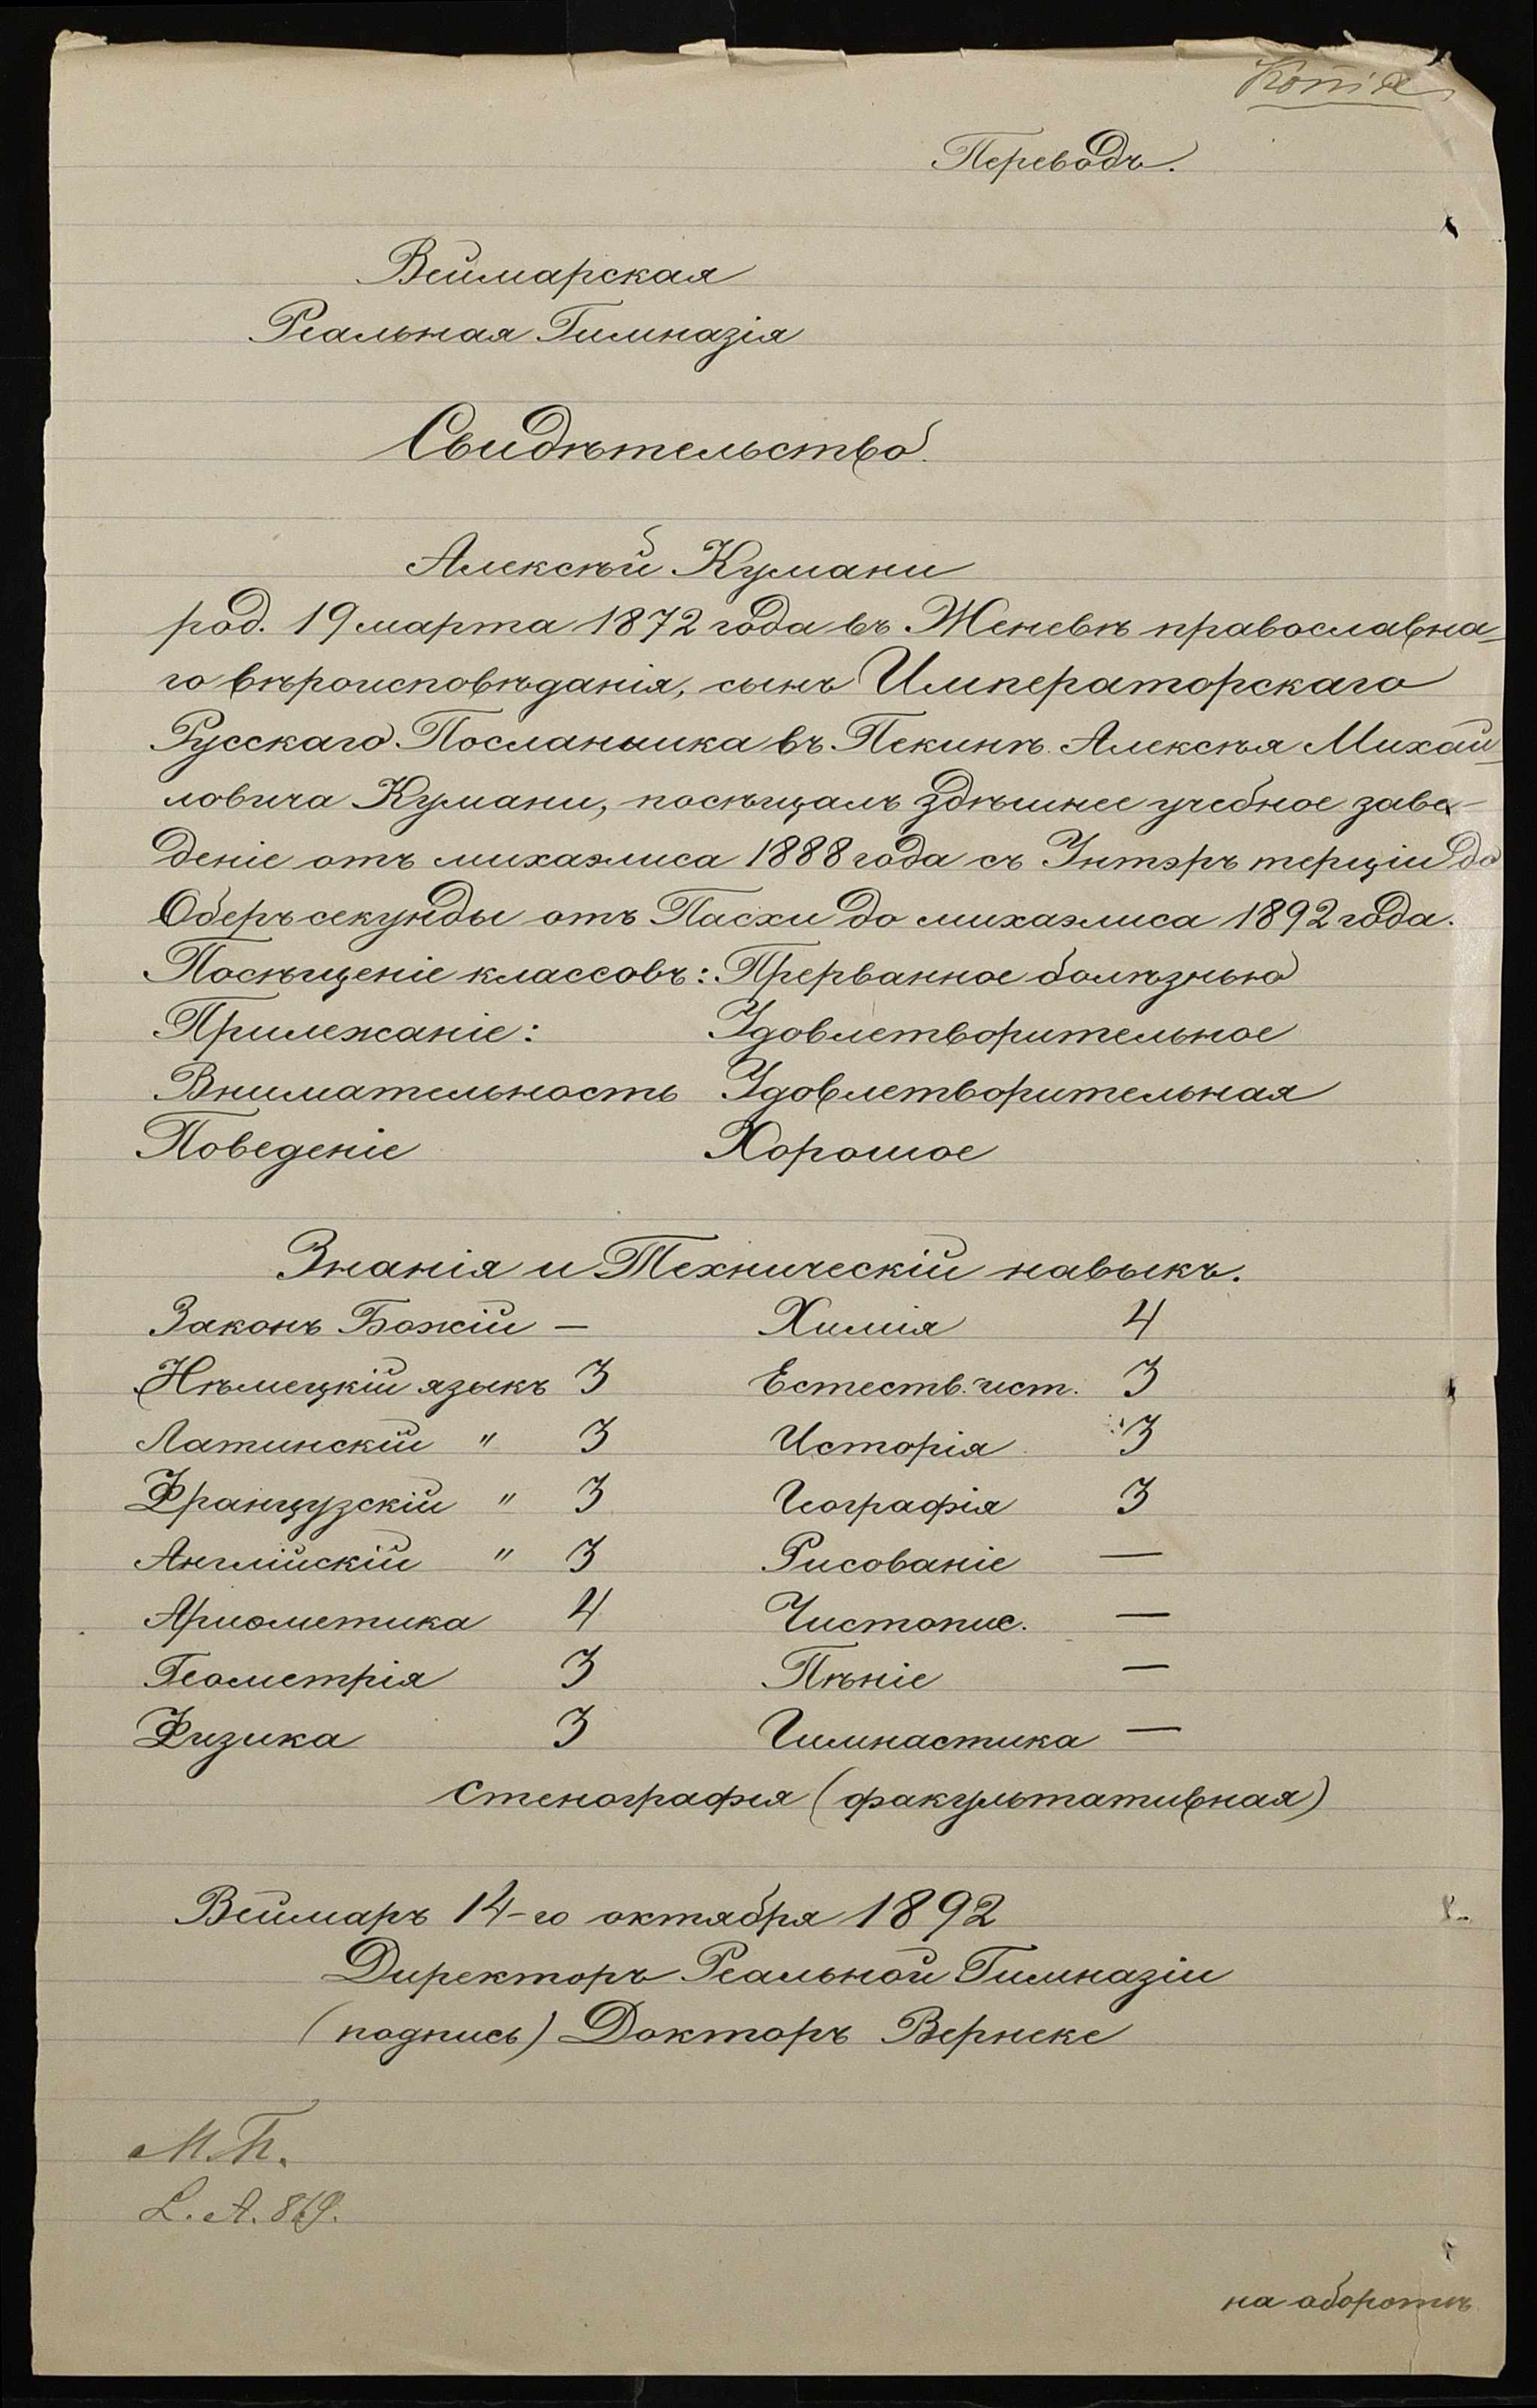 Копія
Переводъ.
Веймарская
Реальная Гимназія
Свидѣтельство.
Алексѣй Кумани
род. 19 марта 1872 года въ Женевѣ православна-
го вѣроисповѣданія, сынъ Императорскаго
Русскаго Посланника въ Пекинѣ Алексѣя Михай-
ловича Кумани, посѣщалъ здѣшнее учебное заве-
деніе отъ михаэлиса 1888 года съ Унтэръ терціи до
Оберъ секунды отъ Пасхи до михаэлиса 1892 года.
Посѣщеніе классовъ: Прерванное болѣзнью
Прилежаніе: Удовлетворительное
Внимательность Удовлетворительная
Поведеніе Хорошое
Знанія и Техническій навыкъ.
Законъ Божій — Химія 4
Нѣмецкій языкъ 3 Естеств. ист. 3
Латинскій " 3 Исторія 3
Французскій " 3 Географія 3
Англійскій " 3 Рисованіе —
Ариѳметика 4 Чистопис. —
Геометрія 3 Пѣніе —
Физика 3 Гимнастика —
Стенографія (факультативная)
Веймаръ 14-го октября 1892
Директоръ Реальной Гимназіи
(подпись) Докторъ Вернеке
М.П.
L. A. 869.
на оборотѣ